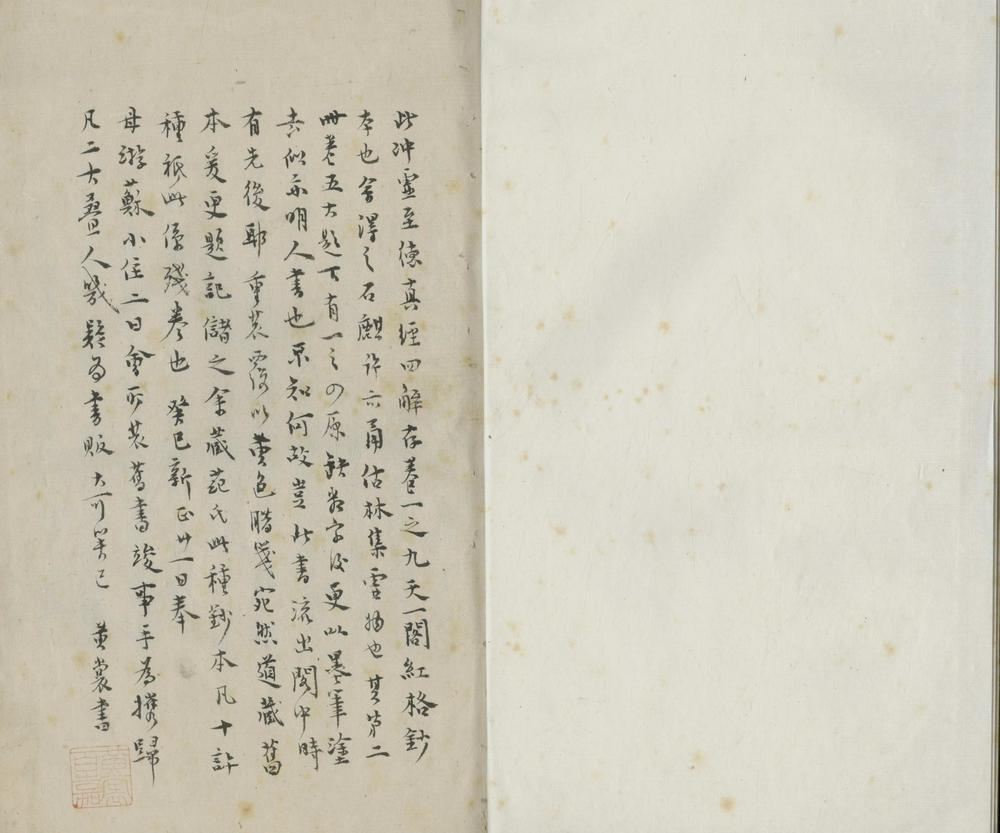 此沖虛至德真經四解存卷一之九天一閣紅格鈔
本也舍得之石麒許亦甬估林集雲物也其第二
冊卷五大題下有一之四原缺卷字後更以墨筆塗
去似亦明人書也不知何故豈此書流出閣中時
有先後耶重裝覆以黃色腊箋宛然道藏舊
本爰更題記儲之余藏范氏此種鈔本凡十許
種祇此係殘卷也 癸巳新正廿一日奉
母游蘇小住二日會所裝舊書竣事手為攜歸
凡二大疊人幾疑為書販大可笑已 黃裳書